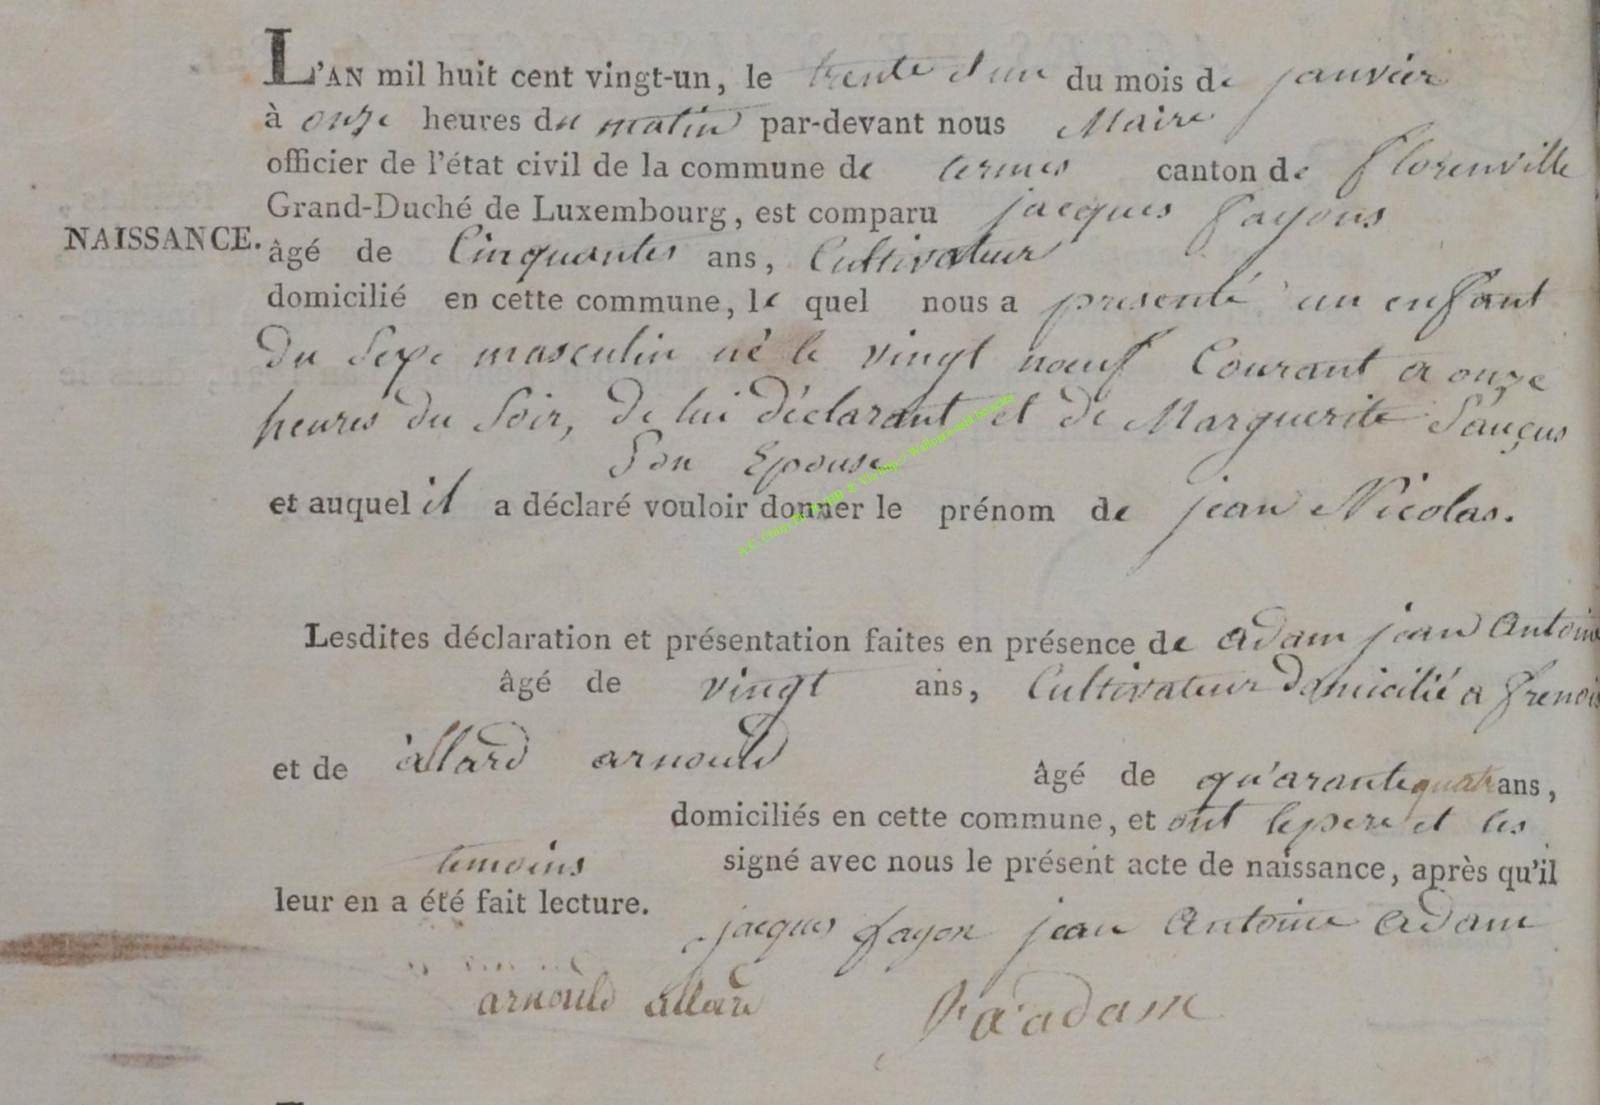 L'AN mil huit cent vingt-un, le trente et un du mois de janvier
à onze heures du matin par-devant nous Maire
officier de l'état civil de la commune de termes canton de florenville
Grand-Duché de Luxembourg, est comparu jacques fayons
NAISSANCE. âgé de Cinquantes ans, Cultivateur
domicilié en cette commune, le quel nous a presenté un enfant
du sexe masculin né le vingt nœuf Courant a onze
heures du Soir, de lui déclarant et de Marguerite
Son Epouse
et auquel il a déclaré vouloir donner le prénom de jean Nicolas.
Lesdites déclaration et présentation faites en présence de adam jean Antoine
âgé de vingt ans, Cultivateur domicilié a frenois
et de allard arnould âgé de qu'arante quatr ans,
domiciliés en cette commune, et ont le pere et les
temoins signé avec nous le présent acte de naissance, après qu'il
leur en a été fait lecture.
jacques fayon jean Antoine adam
arnould allard adam